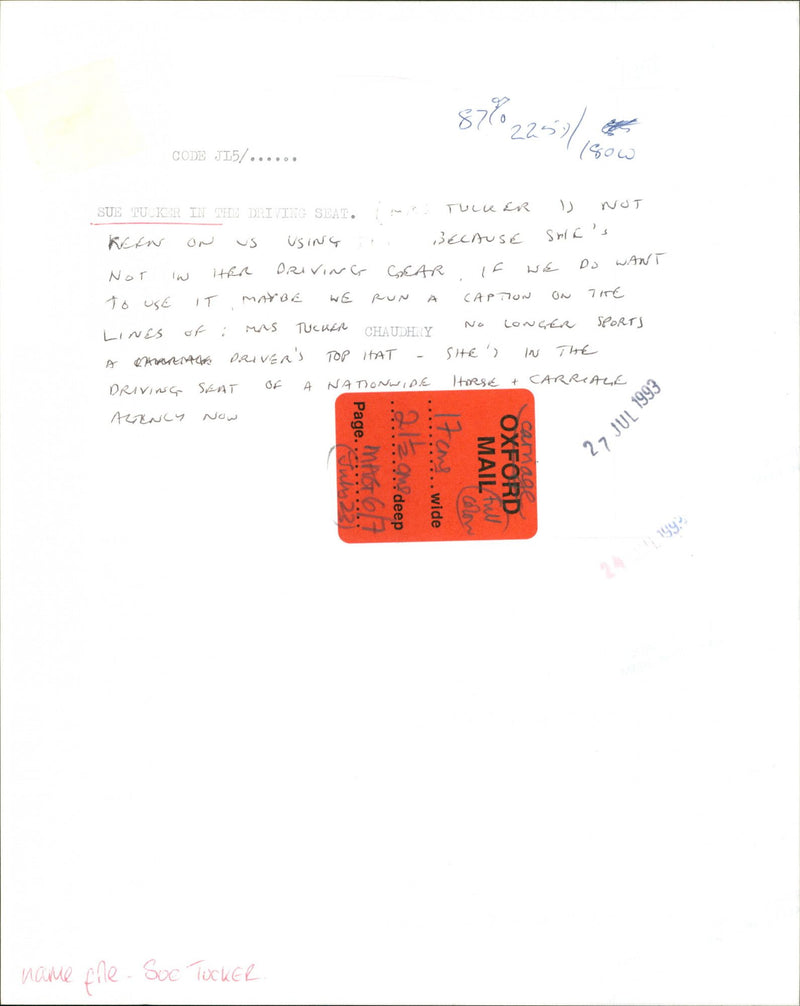 87%
2250/
1800
CODE JL5/......
SUE TUCKER IN THE DRIVING SEAT. (MRS TUCKER IS NOT
KEEN ON US USING BECAUSE SHE'S
NOT IN HER DRIVING GEAR. IF WE DO WANT
TO USE IT, MAYBE WE RUN A CAPTION ON THE
LINES OF: MRS TUCKER CHAUDHRY NO LONGER SPORTS
A DRIVER'S TOP HAT - SHE'S IN THE
DRIVING SEAT OF A NATIONWIDE HORSE + CARRIAGE
AGENCY NOW
27 JUL 1993
carriage
OXFORD
MAIL
Full
Colour
17 cms wide
21½ cms deep
Page. MAG 6/7
(July 23)
24 1993
name file - Sue TUCKER